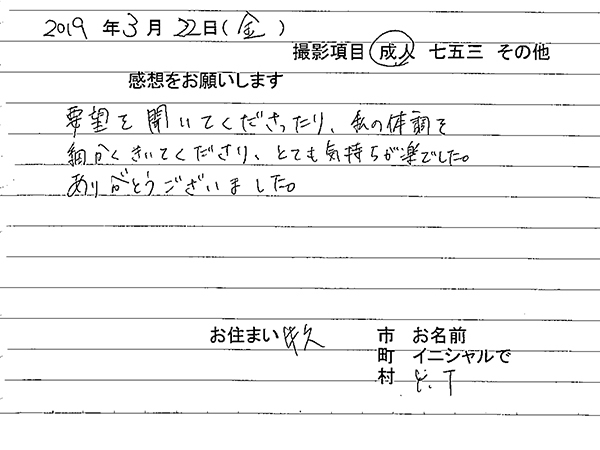 2019 年 3 月 22日(金)
撮影項目 成人 七五三 その他
感想をお願いします
要望を聞いてくださったり、私の体調を
細かくきいてくださり、とても気持ちが楽でした。
ありがとうございました。
お住まい 牛久 市 お名前
町 イニシャルで
村 Y.T